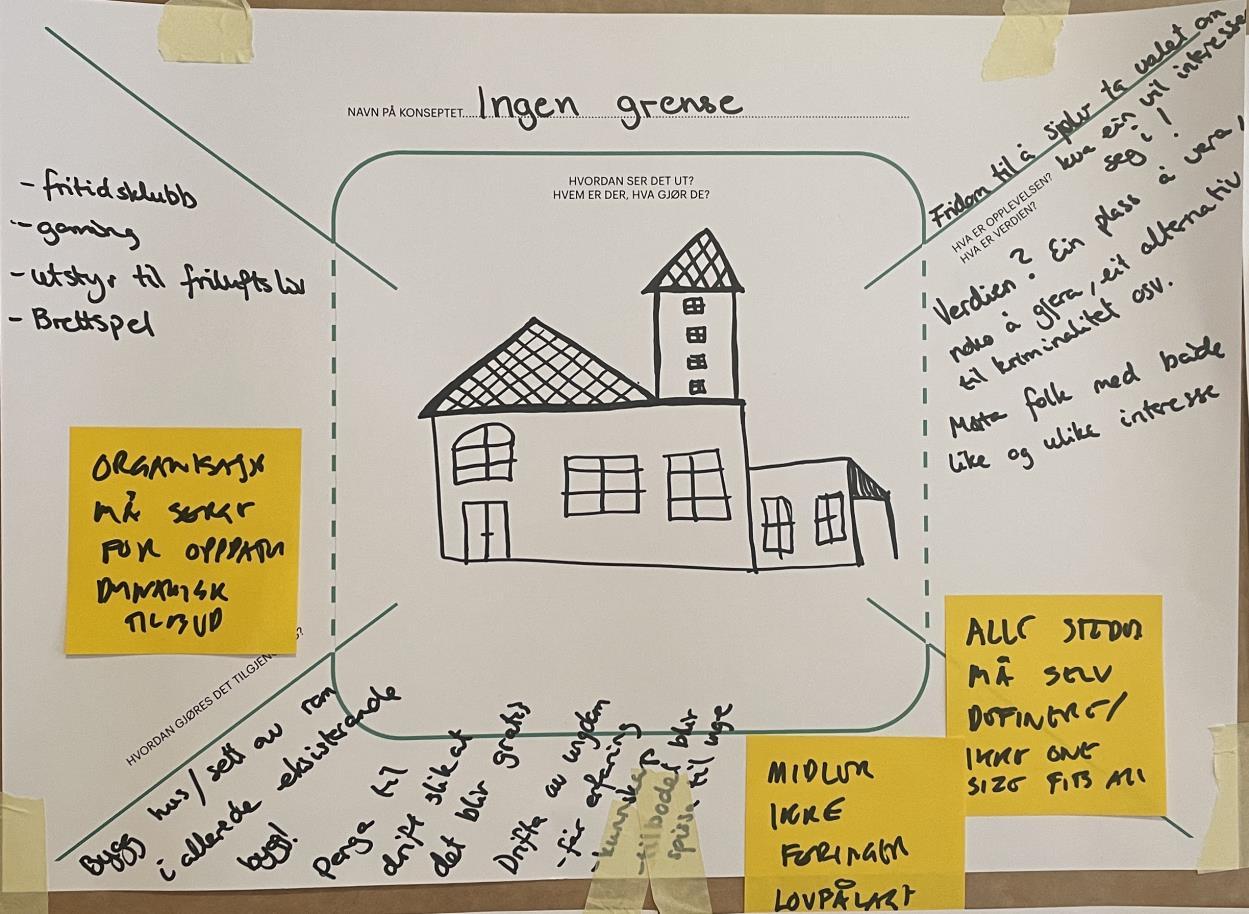 NAVN PÅ KONSEPTET Ingen grense
HVORDAN SER DET UT?
HVEM ER DER, HVA GJØR DE?
- fritidsklubb
- gaming
- utstyr til friluftsliv
- Brettspel
ORGANISASJON
MÅ SØRGE
FOR OPPDATERT
DYNAMISK
TILBUD
HVORDAN GJØRES DET TILGJENGELIG?
Bygg hus/sett av rom
i allerede eksisterande
bygg!
Penge til
drift slik at
det blir gratis
Drifta av ungdom
- får erfaring
- kunnskap
- tilbodet blir
spissa til unge
Fridom til å sjølv ta valet om
kva ein vil interesse
seg i!
HVA ER OPPLEVELSEN?
HVA ER VERDIEN?
Verdien? Ein plass å vera,
noko å gjera, eit alternativ
til kriminalitet osv.
Møta folk med både
like og ulike interesse
ALLE STEDER
MÅ SELV
DEFINERE/
IKKE ONE
SIZE FITS ALL
MIDLER
IKKE
FØRINGER
LOVPÅLAGT